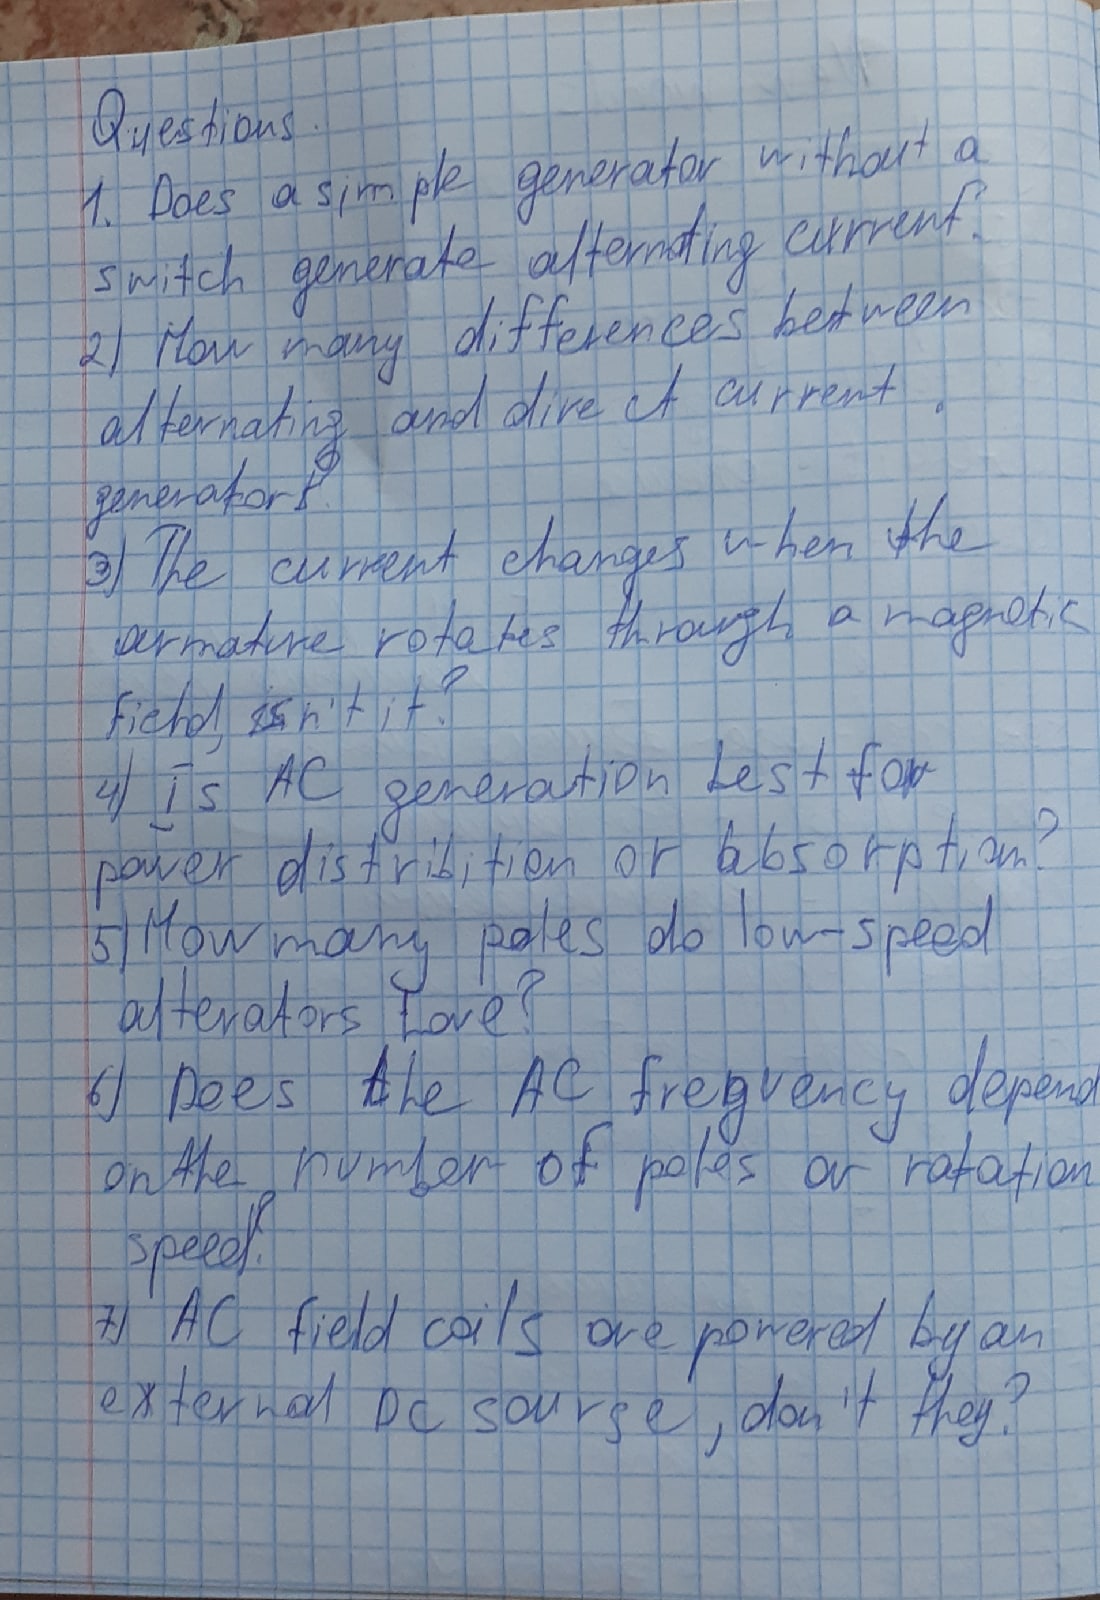 Questions.
1. Does a simple generator without a
switch generate alternating current?
2) How many differences between
alternating and direct current
generators?
3) The current changes when the
armature rotates through a magnetic
field, isn't it?
4) Is AC generation best for
power distribition or absorption?
5) How many poles do low-speed
alterators have?
6) Does the AC freqvency depend
on the number of poles or rotation
speed?
7) AC field coils are powered by an
external DC sourse, don't they?